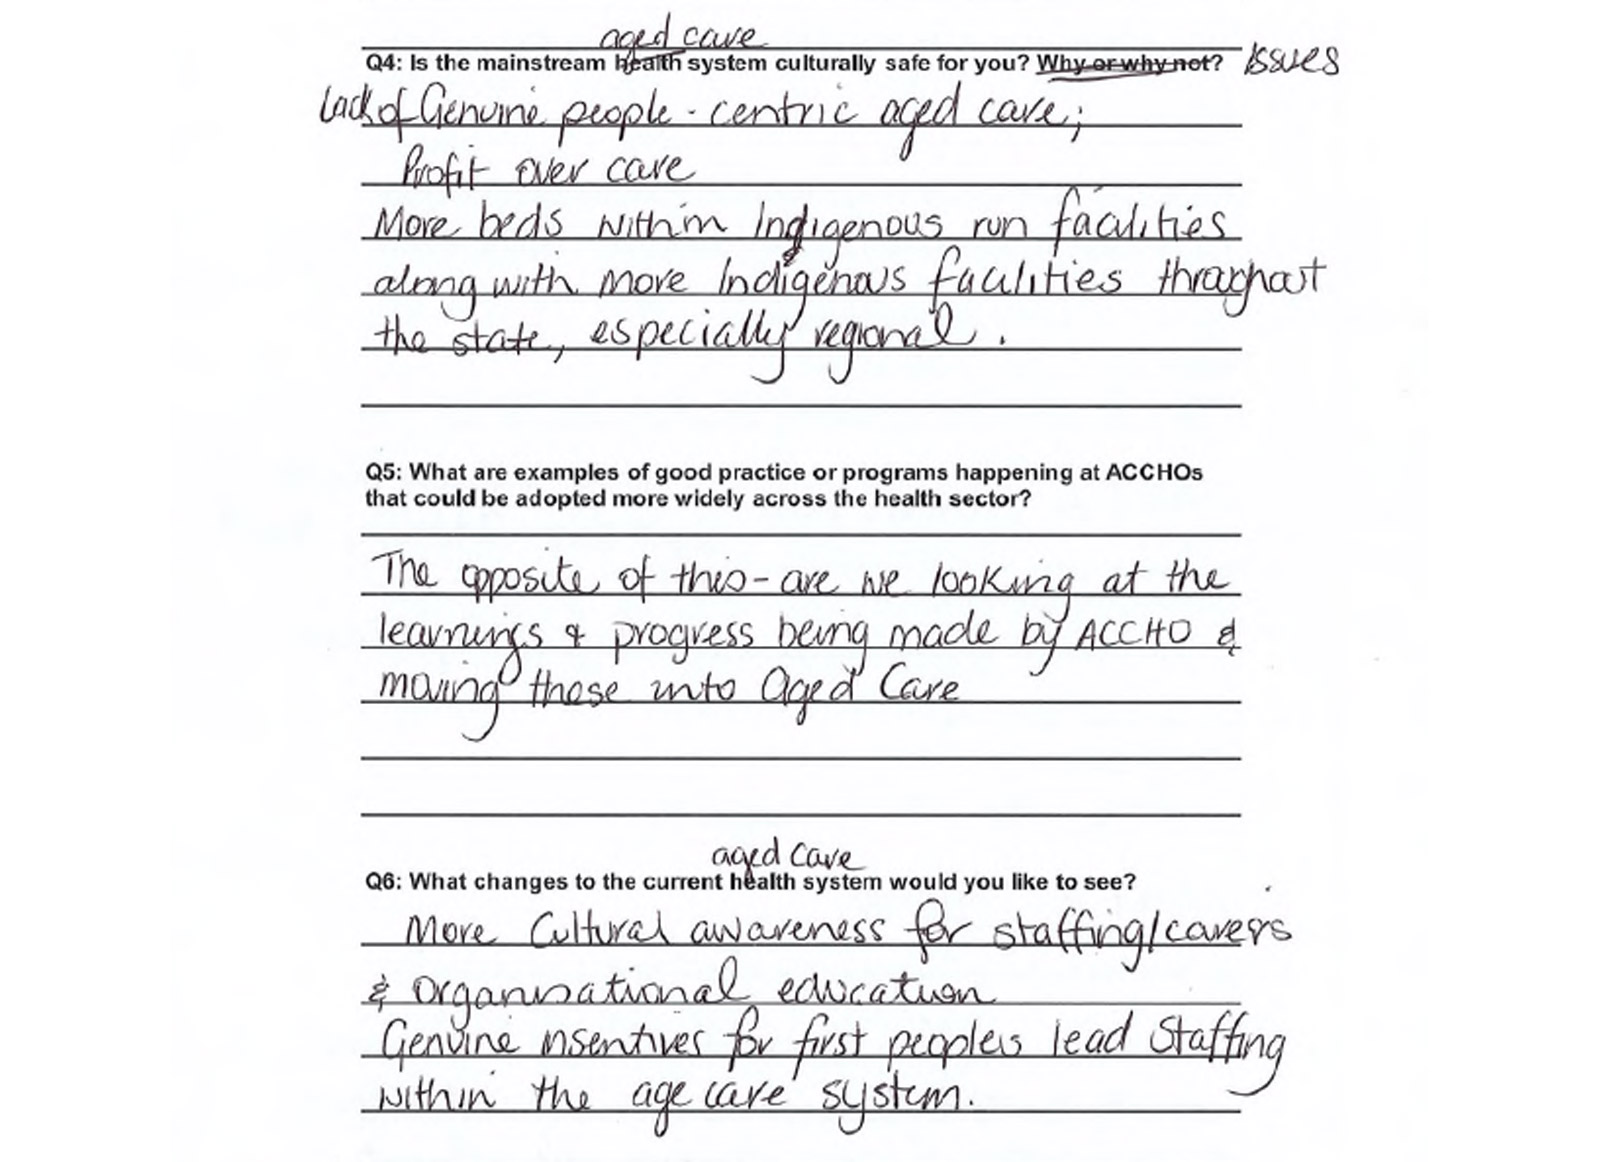 aged care
Q4: Is the mainstream health system culturally safe for you? Why or why not? Issues
Lack of Genuine people - centric aged care;
Profit over care
More beds within Indigenous run facilities
along with more Indigenous facilities throughout
the state, especially regional.
Q5: What are examples of good practice or programs happening at ACCHOs
that could be adopted more widely across the health sector?
The opposite of this - are we looking at the
learnings & progress being made by ACCHO &
moving those into Aged Care
aged Care
Q6: What changes to the current health system would you like to see?
More Cultural awareness for staffing/carers
& organisational education
Genuine insentives for first peoples lead Staffing
within the age care system.